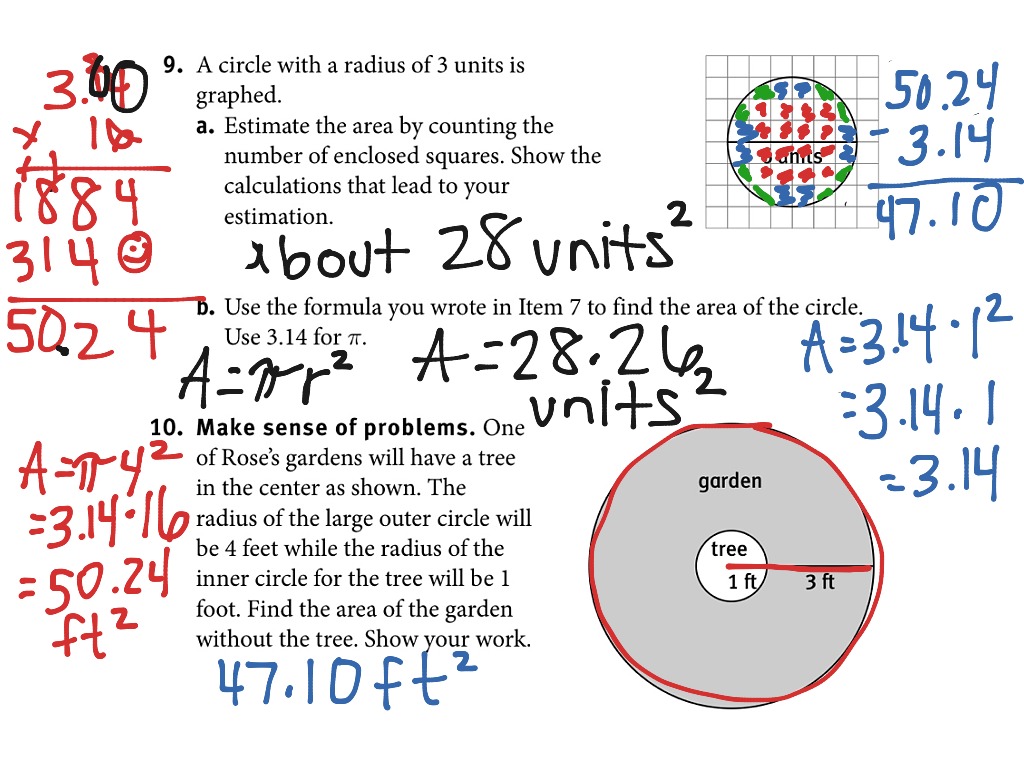 9. A circle with a radius of 3 units is
graphed.
a. Estimate the area by counting the
number of enclosed squares. Show the
calculations that lead to your
estimation.
about 28 units²
3 units
b. Use the formula you wrote in Item 7 to find the area of the circle.
Use 3.14 for π.
A=πr²
A=28.26
units²
10. Make sense of problems. One
of Rose's gardens will have a tree
in the center as shown. The
radius of the large outer circle will
be 4 feet while the radius of the
inner circle for the tree will be 1
foot. Find the area of the garden
without the tree. Show your work.
47.10 ft²
garden
tree
1 ft
3 ft
x 16
1884
314
50.24
A=π4²
=3.14·16
=50.24
ft²
50.24
- 3.14
47.10
A=3.14·1²
=3.14·1
=3.14